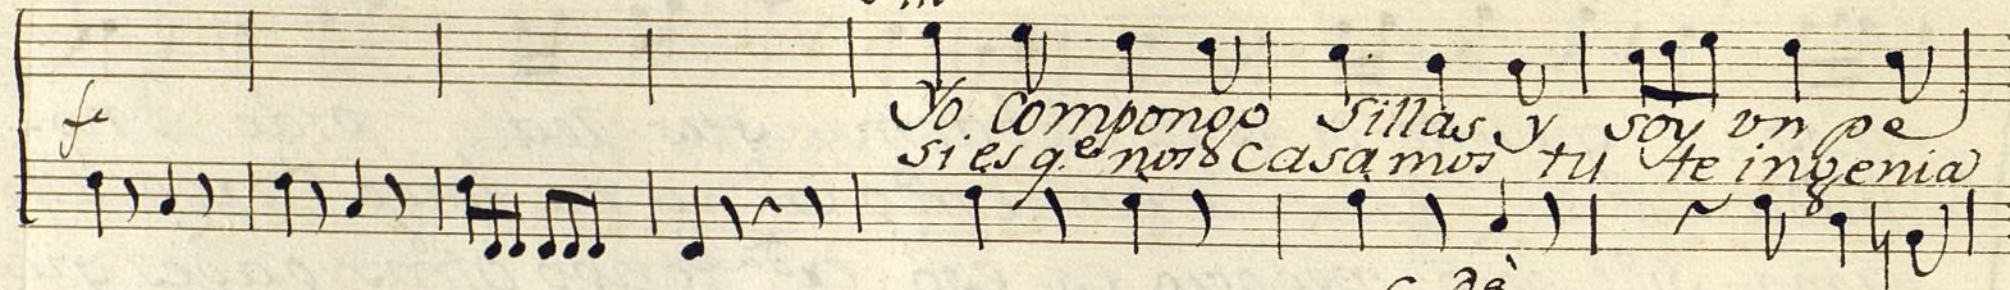 fe
Yo Compongo Sillas y soy vn pe
si es q.e nos Casamos tu te ingenia